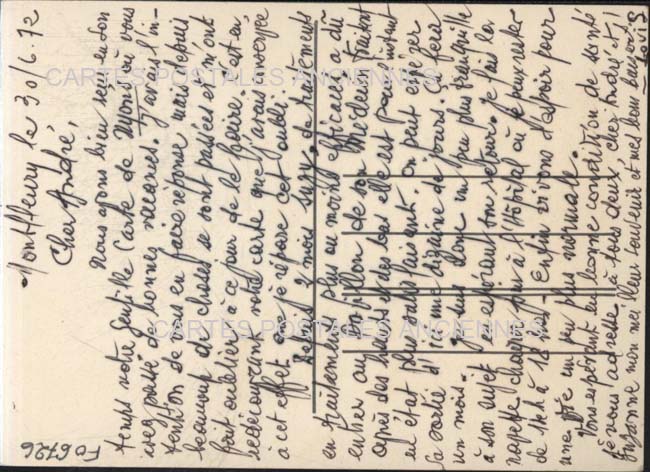 Montfleury le 30/6.72
Cher André,
Nous avons bien reçu en son
temps votre gentille carte de Nyons où vous
avez passé de bonnes vacances. J'avais l'in-
tention de vous en faire réponse mais depuis
beaucoup de choses se sont passées et m'ont
fait oublier à ce jour de le faire. C'est en
redécouvrant votre carte que j'avais envoyée
à cet effet que je répare cet oubli.
Depuis 2 mois suzy. de traitements
en traitements plus ou moins efficaces a dû
entrer au pavillon de son Médecin traitant
après des hauts et des bas elle est maintenant
en état plus satisfaisant. On peut espérer
sa sortie d'ici une dizaine de jours. Il y eut
un mois. Je suis donc un peu plus tranquille
à son sujet en espérant son retour. Je fais la
navette chaque jour à l'Hôpital où je peux rester
de 14h à 18h. Enfin vivons d'espoir pour
une vie un peu plus normale.
Vous espérant en bonne condition de santé
je vous adresse à tous deux cher André et
Suzanne mon meilleur souvenir et mes bons baisers
Louis
F06726
CARTES POSTALES ANCIENNES
CARTES POSTALES ANCIENNES